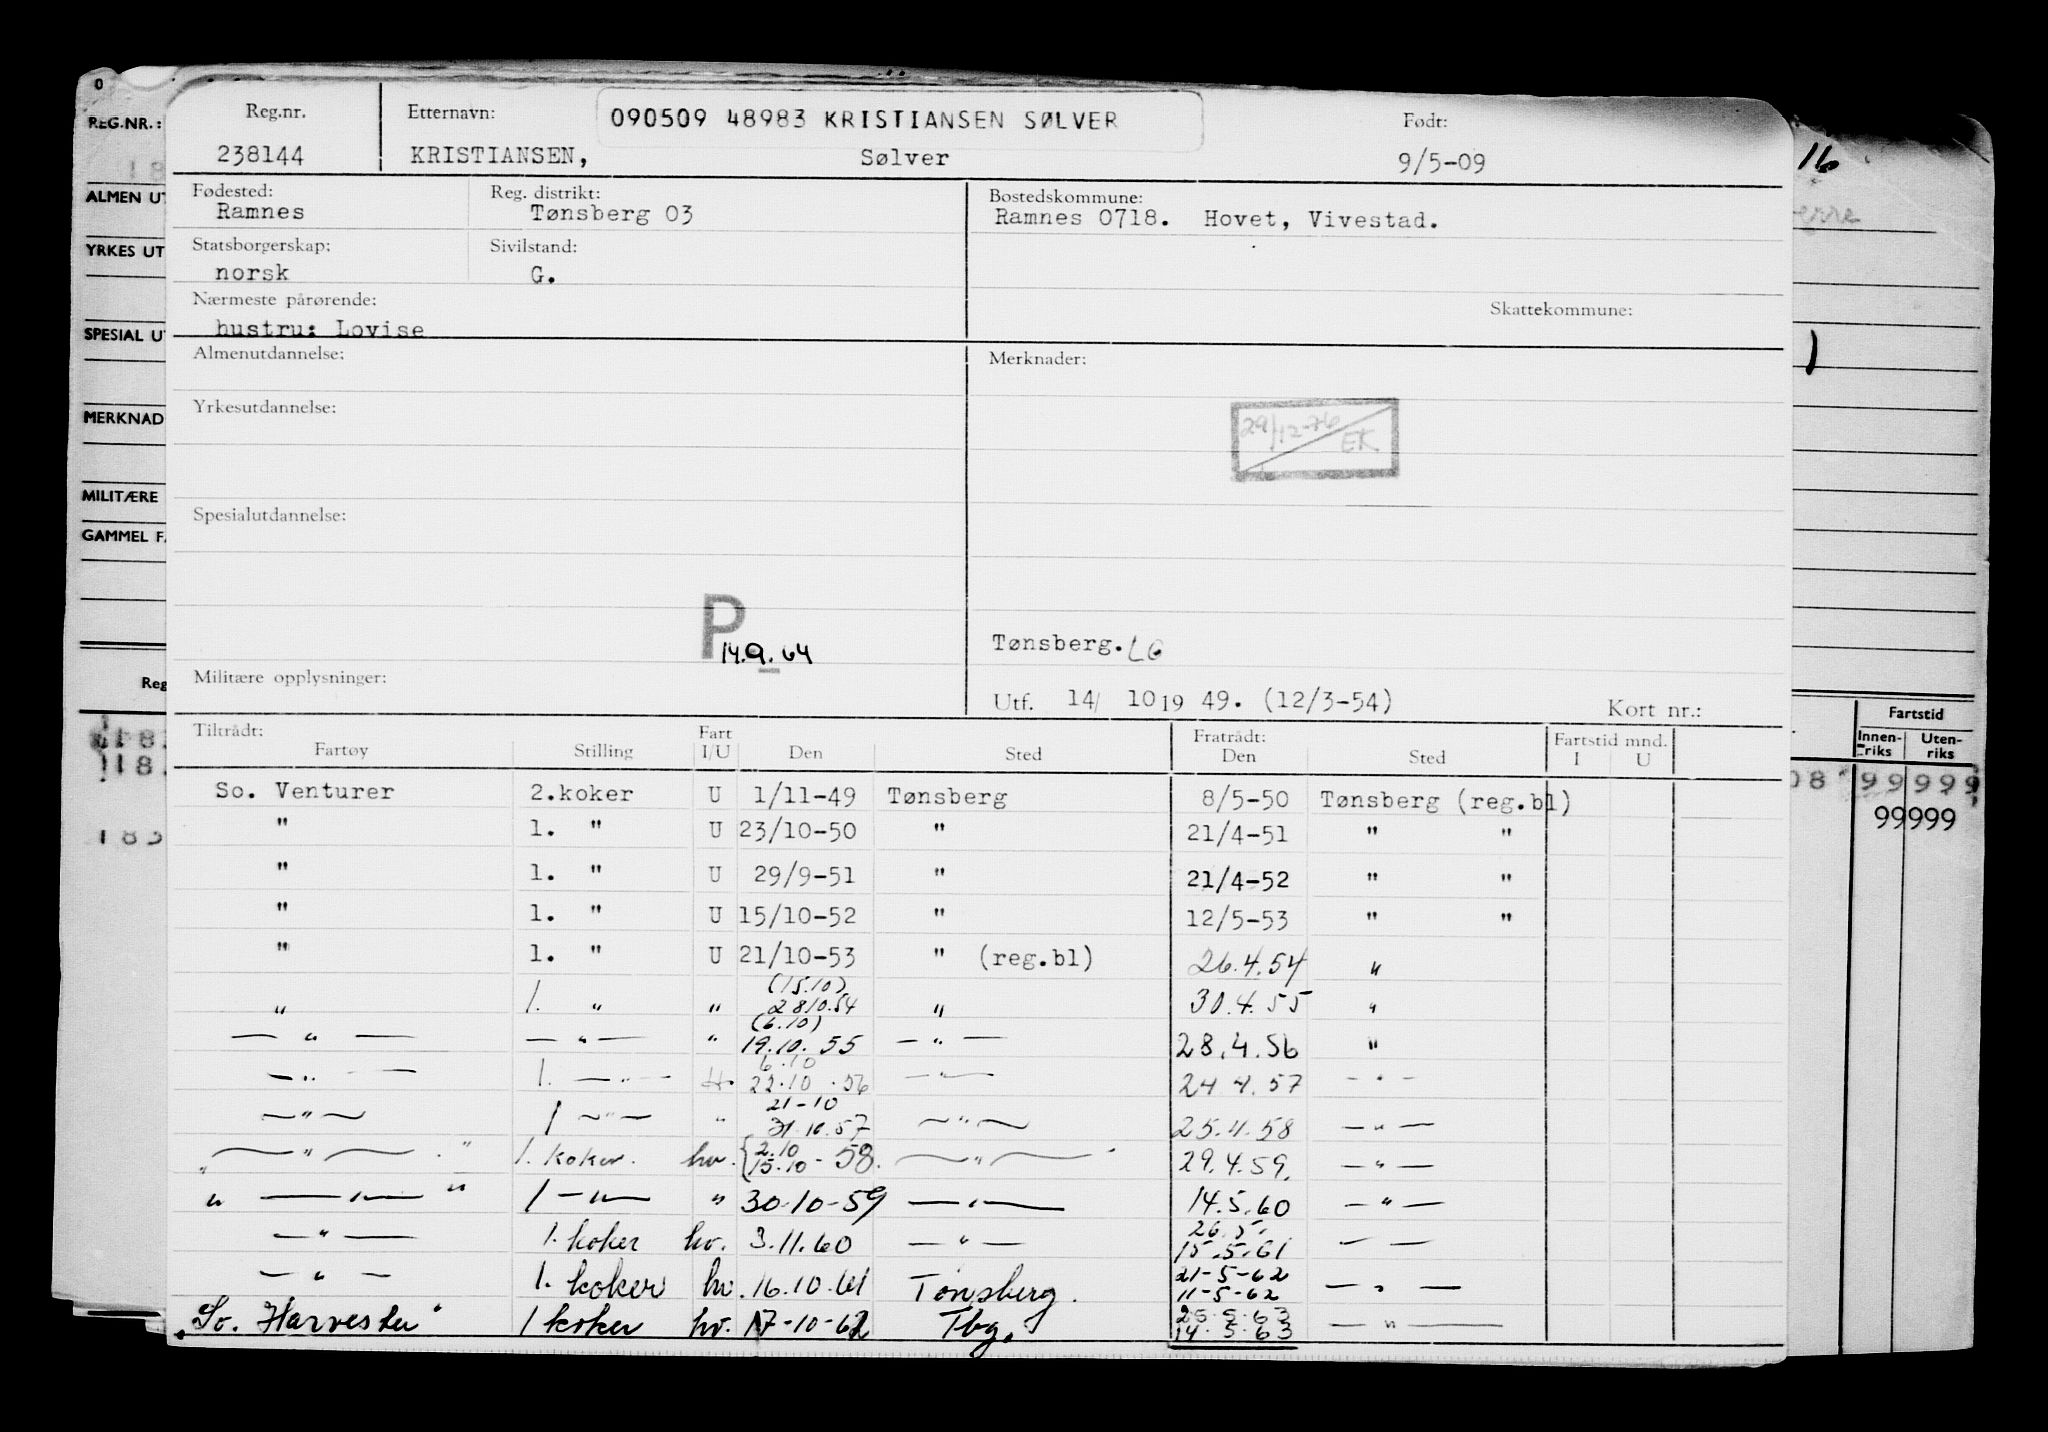 Reg.nr. Etternavn: 090509 48983 KRISTIANSEN SØLVER Født:
238144 KRISTIANSEN, Sølver 9/5-09
Fødested: Reg. distrikt: Bostedskommune:
Ramnes Tønsberg 03 Ramnes 0718. Hovet, Vivestad.
Statsborgerskap: Sivilstand:
norsk G.
Nærmeste pårørende: Skattekommune:
hustru: Lovise
Almenutdannelse: Merknader:
Yrkesutdannelse:
29/12-76 EK
Spesialutdannelse:
P
14.9.64
Tønsberg. LG
Militære opplysninger:
Utf. 14/ 10 19 49. (12/3-54) Kort nr.:
Tiltrådt: Fart Fratrådt: Fartstid mnd.
Fartøy Stilling I/U Den Sted Den Sted I U
So. Venturer 2.koker U 1/11-49 Tønsberg 8/5-50 Tønsberg (reg.bl)
" 1. " U 23/10-50 " 21/4-51 " "
" 1. " U 29/9-51 " 21/4-52 " "
" 1. " U 15/10-52 " 12/5-53 " "
" 1. " U 21/10-53 " (reg.bl) 26.4.54 "
(15.10)
" 1. " " 28.10.54 " 30.4.55 "
(6.10)
— " — — " — " 19.10.55 — " — 28.4.56 "
6.10
— " — 1. — " — 22.10.56 — " — 24.4.57 — " —
21-10
— " — 1 — " — " 31.10.57 — " — 25.4.58 — " —
2.10
" — " — " 1. koker. hv. 15.10-58. — " — 29.4.59. — " —
" — " — " 1 — " — " 30-10-59 — " — 14.5.60 — " —
26.5.
— " — 1. koker hv. 3.11.60 — " — 15.5.61 — " —
21-5-62
— " — 1. koker hv. 16.10.61 Tønsberg. 11-5-62 — " —
25.5.63
"So. Harvester" 1 koker hv. 17-10-62 Tbg. 14.5.63 — " —
0
REG.NR.:
ALMEN UT
YRKES UT
SPESIAL UT
MERKNAD
MILITÆRE
GAMMEL FA
Reg
183
16
Fartstid
Innen-riks Uten-riks
08 99999
99999